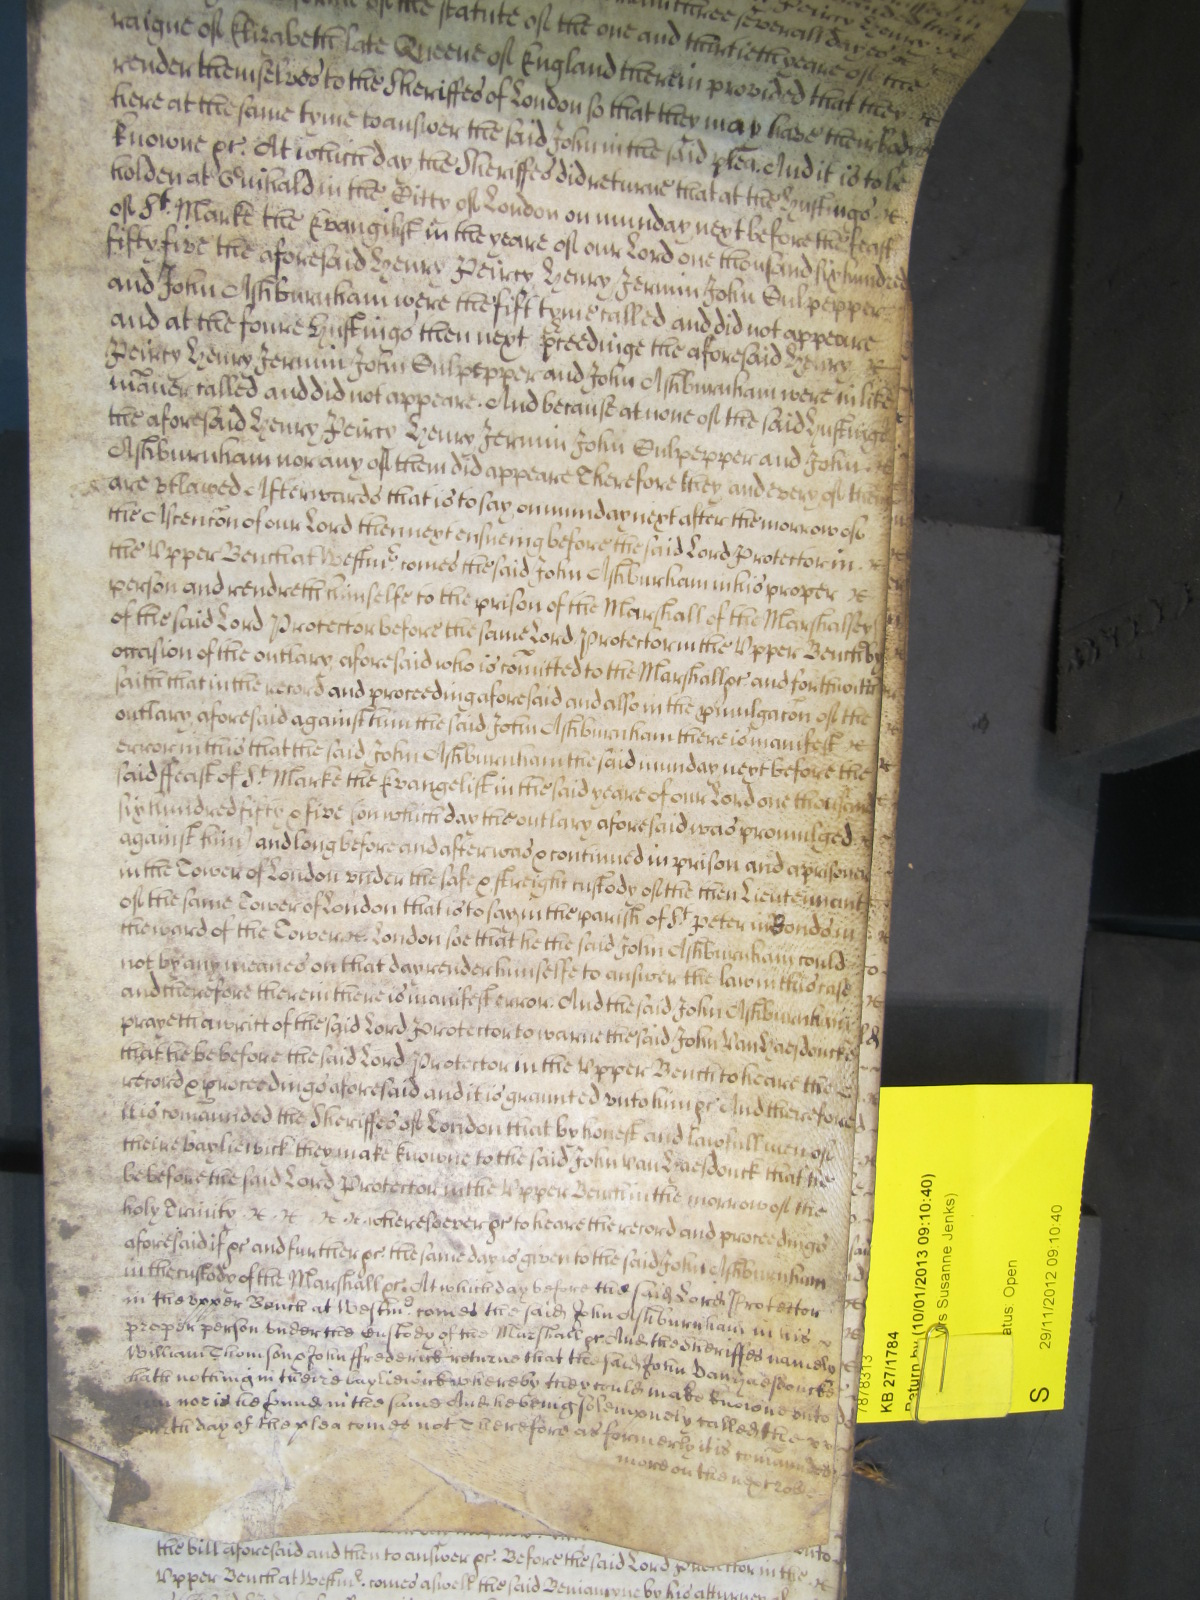 forme of the statute of the one and thirtieth yeare of the
raigne of Elizabeth late Queene of England therein provided that they
render themselves to the Sheriffes of London so that they may have their bodies
here at the same tyme to answer the said John in the said plea. And it is to be
knowne &c. At which day the Sheriffes did returne that at the Hustings
holden at Guihald in the Citty of London on munday next before the feast
of St. Marke the Evangelist in the yeare of our Lord one thousand six hundred
fifty five the aforesaid Henry Peircy Henry Jermin John Culpepper
and John Ashburnham were the fift tyme called and did not appeare
and at the foure Hustings then next preceedinge the aforesaid Henry
Peircy Henry Jermin John Culpepper and John Ashburnham were in like
maner called and did not appeare. And because at none of the said Hustings
the aforesaid Henry Peircy Henry Jermin John Culpepper and John
Ashburnham nor any of them did appeare Therefore they and every of them
are utlawed Afterwards that is to say on munday next after the morrow of
the Ascencon of our Lord then next ensueing before the said Lord Protector in
the Upper Bench at Westmr. comes the said John Ashburnham in his proper
person and rendreth himselfe to the prison of the Marshall of the Marshallsey
of the said Lord Protector before the same Lord Protector in the Upper Bench by
occasion of the outlary aforesaid who is comitted to the Marshall &c and forthwith
saith that in the record and proceeding aforesaid and also in the pmulgacon of the
outlary aforesaid against him the said John Ashburnham there is manifest
error in this that the said John Ashburnham the said munday next before the
said ffeast of St. Marke the Evangelist in the said yeare of our Lord one thousand
six hundred fifty & five (on which day the outlary aforesaid was promulged
against him) and long before and after was & continued in prison and a prisoner
in the Tower of London under the safe & streight custody of the then Lieutennant
of the same Tower of London that is to say in the parish of St. Peter in Bonds in
the ward of the Tower London soe that he the said John Ashburnham could
not by any meanes on that day render himselfe to answer the law in this case
and therefore therein there is manifest error. And the said John Ashburnham
prayeth a writt of the said Lord Protector to warne the said John VanHaesdoncke
that he be before the said Lord Protector in the Upper Bench to heare the
record & proceedings aforesaid and it is graunted unto him &c And therefore
it is comaunded the Sheriffes of London that by honest and lawfull men of
theire bayliewick they make knowne to the said John Van Haesdonck that he
be before the said Lord Protector in the Upper Bench in the morrow of the
holy Trinity wheresoever &c to heare the record and proceedings
aforesaid if &c and further &c the same day is given to the said John Ashburnham
in the custody of the Marshall &c. At which day before the said Lord Protector
in the Upper Bench at Westmr. comes the said John Ashburnham in his
proper person under the custody of the Marshall &c And the Sheriffes namely
William Thomson & John ffrederick returne that the said John Van Haesdoncke
hath nothing in theire bayliewick whereby they could make knowne unto
him nor is he found in the same And he being solempnely called the
fourth day of the plea comes not Therefore as formerly it is comaunded
more on the next roll
the bill aforesaid and then to answer &c. Before the said Lord protector in the
Upper Bench at Westmr. comes aswell the said Beniamyne by his atturney
KB 27/1784
Return by (10/01/2013 09:10:40)
Mrs Susanne Jenks)
atus: Open
29/11/2012 09:10:40
S